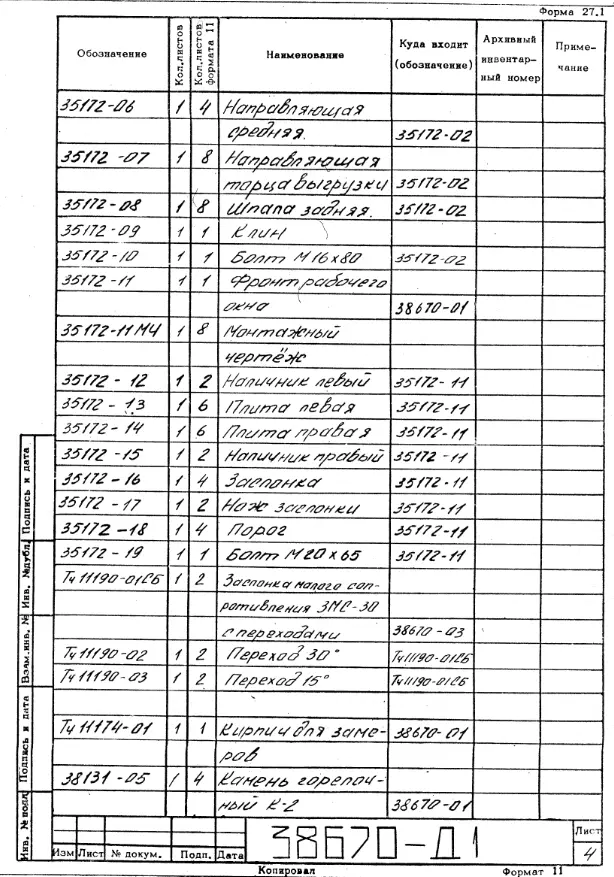 Форма 27.1
Обозначение Кол.листов Кол.листов формата 11 Наименование Куда входит (обозначение) Архивный инвентарный номер Примечание
35172-06 1 4 Направляющая
средняя. 35172-02
35172-07 1 8 Направляющая
торца выгрузки 35172-02
35172-08 1 8 Шпала задняя. 35172-02
35172-09 1 1 Клин
35172-10 1 1 Болт М16х80 35172-02
35172-11 1 1 Фронт рабочего
окна 38670-01
35172-11МЧ 1 8 Монтажный
чертёж
35172-12 1 2 Наличник левый 35172-11
35172-13 1 6 Плита левая 35172-11
35172-14 1 6 Плита правая 35172-11
35172-15 1 2 Наличник правый 35172-11
35172-16 1 4 Заслонка 35172-11
35172-17 1 2 Нож заслонки 35172-11
35172-18 1 4 Порог 35172-11
35172-19 1 1 Болт М20х65 35172-11
Тч11190-01СБ 1 2 Заслонка малого соп-
ротивления ЗМС-30
с переходами 38670-03
Тч11190-02 1 2 Переход 30° Тч11190-01СБ
Тч11190-03 1 2 Переход 15° Тч11190-01СБ
Тч11174-01 1 1 Кирпич для заме-
ров 38670-01
38131-05 1 4 Камень горелоч-
ный К-2 38670-01
Инв. № подл. Подпись и дата Взам.инв. № Инв. №дубл. Подпись и дата
Изм Лист № докум. Подп. Дата
38670-Д1
Лист
4
Копировал Формат 11